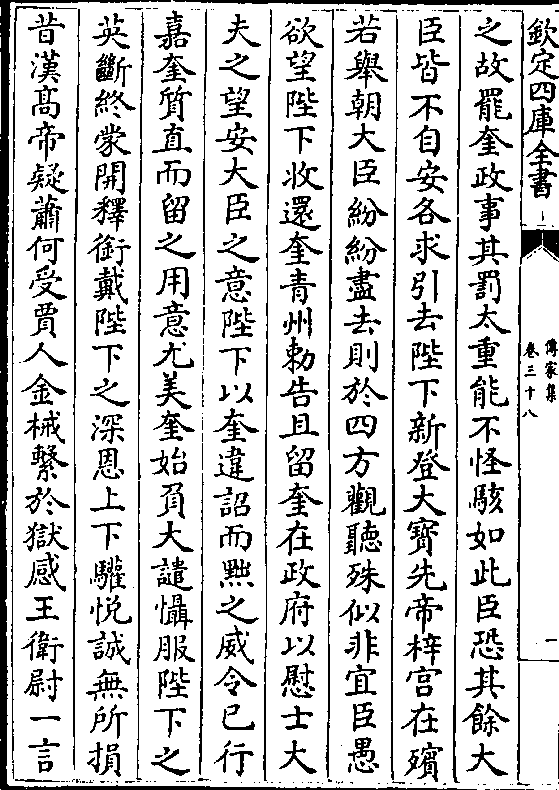 欽定四庫全書
傳家集
卷三十八
一
之故罷奎政事其罰太重能不怪駭如此臣恐其餘大
臣皆不自安各求引去陛下新登大寳先帝梓宫在殯
若舉朝大臣紛紛盡去則於四方觀聽殊似非宜臣愚
欲望陛下收還奎青州勅告且留奎在政府以慰士大
夫之望安大臣之意陛下以奎違詔而黜之威令已行
嘉奎質直而留之用意尤美奎始負大譴懾服陛下之
英斷終蒙開釋銜戴陛下之深恩上下驩悅誠無所損
昔漢髙帝疑蕭何受賈人金械繫於獄感王衛尉一言